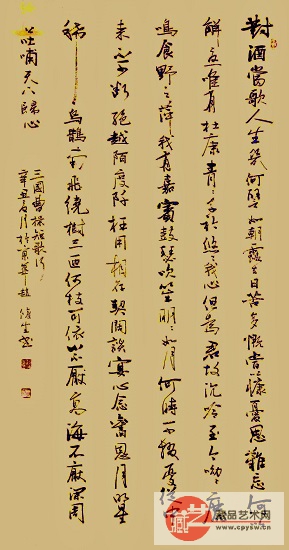 對酒當歌人生幾何譬如朝露去日苦多慨當以慷憂思難忘何
解憂唯有杜康青〻子衿悠〻我心但為君故沉吟至今呦〻鹿
鳴食野之苹我有嘉賓鼓瑟吹笙明〻如月何時可掇憂從中
來不可斷絕越陌度阡枉用相存契闊談宴心念舊恩月明星
稀烏鵲南飛繞樹三匝何枝可依山不厭高海不厭深周
吐哺天下歸心
三國曹操短歌行
辛丑月於京華趙
藏艺
品艺术网
www.cpysw.cn